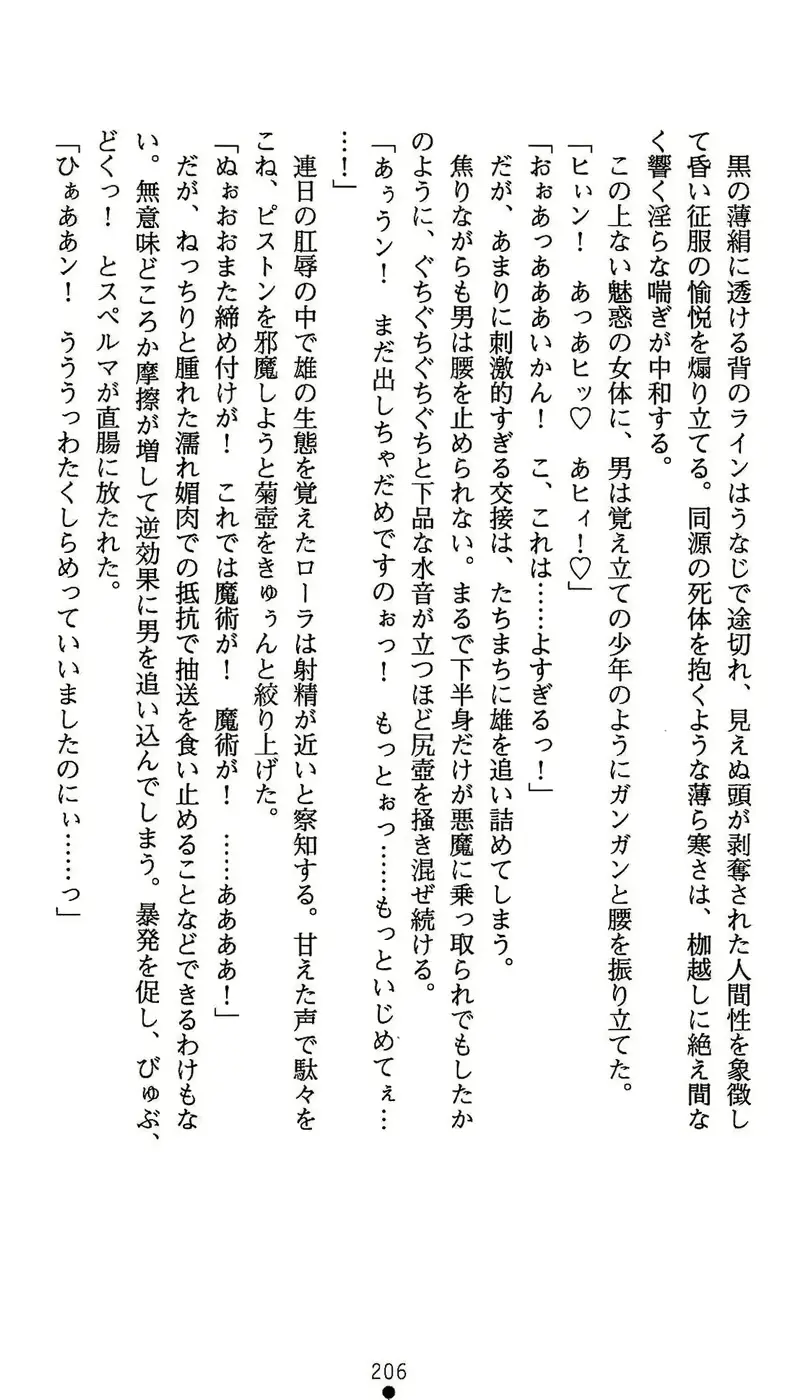 黒の薄絹に透ける背のラインはうなじで途切れ、見えぬ頭が剥奪された人間性を象徴し
て昏い征服の愉悦を煽り立てる。同源の死体を抱くような薄ら寒さは、枷越しに絶え間な
く響く淫らな喘ぎが中和する。
この上ない魅惑の女体に、男は覚え立ての少年のようにガンガンと腰を振り立てた。
「ヒぃン！　あっあヒッ♡　あヒィ！♡」
「おぉあっあああいかん！　こ、これは……よすぎるっ！」
だが、あまりに刺激的すぎる交接は、たちまちに雄を追い詰めてしまう。
焦りながらも男は腰を止められない。まるで下半身だけが悪魔に乗っ取られでもしたか
のように、ぐちぐちぐちぐちと下品な水音が立つほど尻壺を掻き混ぜ続ける。
「あぅうン！　まだ出しちゃだめですのぉっ！　もっとぉっ……もっといじめてぇ…
…！」
連日の肛辱の中で雄の生態を覚えたローラは射精が近いと察知する。甘えた声で駄々を
こね、ピストンを邪魔しようと菊壺をきゅぅんと絞り上げた。
「ぬぉおおまた締め付けが！　これでは魔術が！　魔術が！　……ああああ！」
だが、ねっちりと腫れた濡れ媚肉での抵抗で抽送を食い止めることなどできるわけもな
い。無意味どころか摩擦が増して逆効果に男を追い込んでしまう。暴発を促し、びゅぶ、
どくっ！　とスペルマが直腸に放たれた。
「ひぁああン！　うううっわたくしらめっていいましたのにぃ……っ」
206